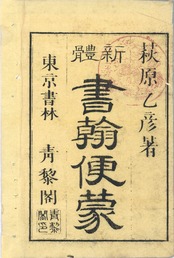 萩原乙彦著
新體
書翰便蒙
東京書林 青黎閣